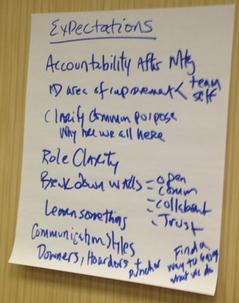 Expectations
Accountability After Mtg
ID area of improvement < team
self
Clarify Common purpose
Why are we all here
Role Clarity
Break down walls - open
- comm
- collaborat
- Trust
Learn something
Communication Styles
Downers, Hoarders +
Find a
way to
what we do